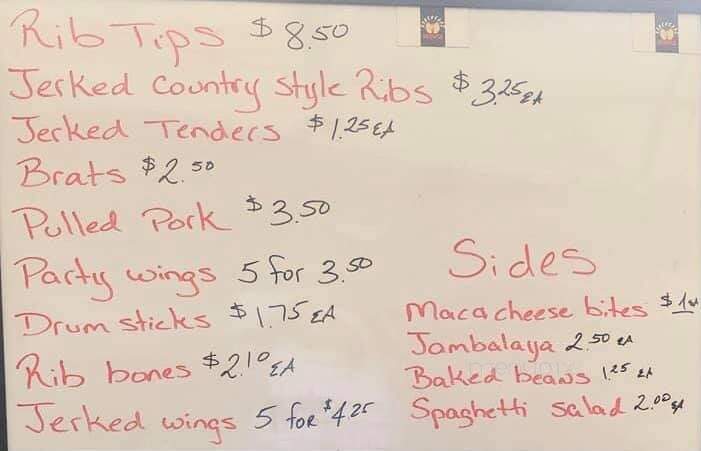 Rib Tips $8.50
Jerked Country Style Ribs $3.25 EA
Jerked Tenders $1.25 EA
Brats $2.50
Pulled Pork $3.50
Party wings 5 for 3.50
Drum sticks $1.75 EA
Rib bones $2.10 EA
Jerked wings 5 for $4.25
Sides
Maca cheese bites $1
Jambalaya 2.50 EA
Baked beans 1.25 EA
Spaghetti salad 2.00 EA